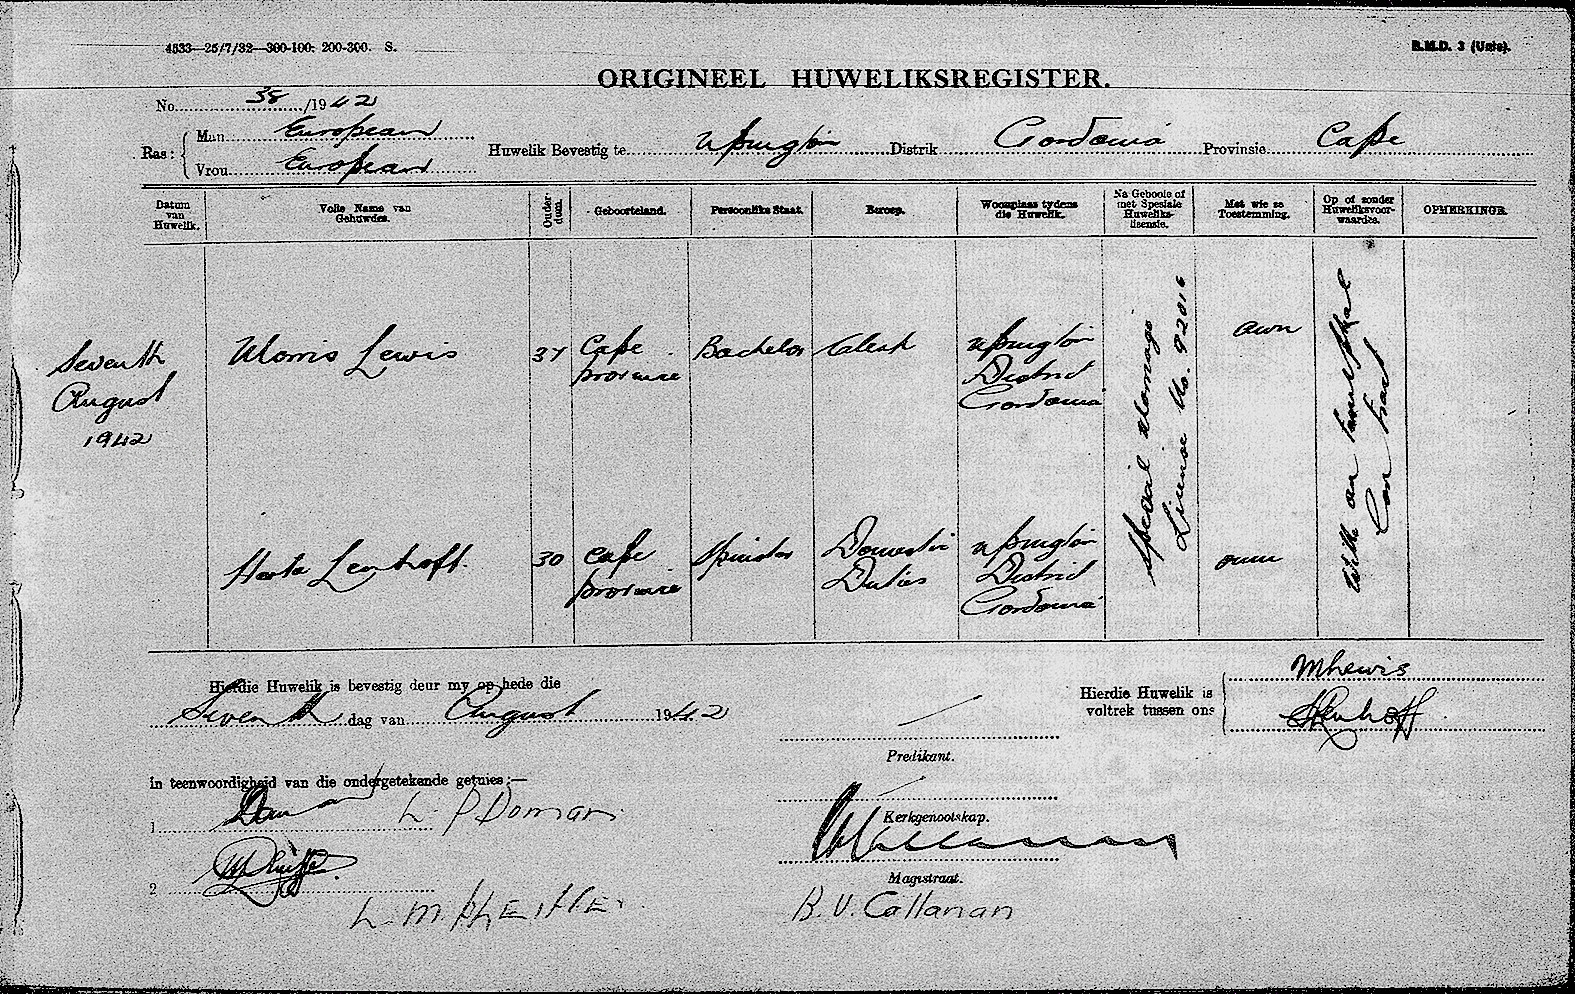 4533—25/7/32—300-100: 200-300. S.
B.M.D. 3 (Unie).
ORIGINEEL HUWELIKSREGISTER.
No. 38 /1942
Ras: Man European
Vrou European
Huwelik Bevestig te Upington Distrik Gordonia Provinsie Cape
Datum van Huwelik. Volle Name van Gehuwdes. Ouderdom. Geboorteland. Persoonlike Staat. Beroep. Woonplaas tydens die Huwelik. Na Gebooie of met Spesiale Huwelikslisensie. Met wie se Toestemming. Op of sonder Huweliksvoorwaardes. OPMERKINGE.
Seventh August 1942
Morris Lewis 37 Cape Province Bachelor Clerk Upington District Gordonia own
Special Marriage Licence No. 92016
With an Antenuptial Contract
Herta Lenhoff. 30 Cape Province Spinster Domestic Duties Upington District Gordonia own
Hierdie Huwelik is bevestig deur my op hede die
Seventh dag van August 1942
Hierdie Huwelik is voltrek tussen ons
MLewis
HLenhoff
Predikant.
in teenwoordigheid van die ondergetekende getuies:—
1 L. P Doman
Kerkgenootskap.
2
Magistraat.
B. V. Callanan